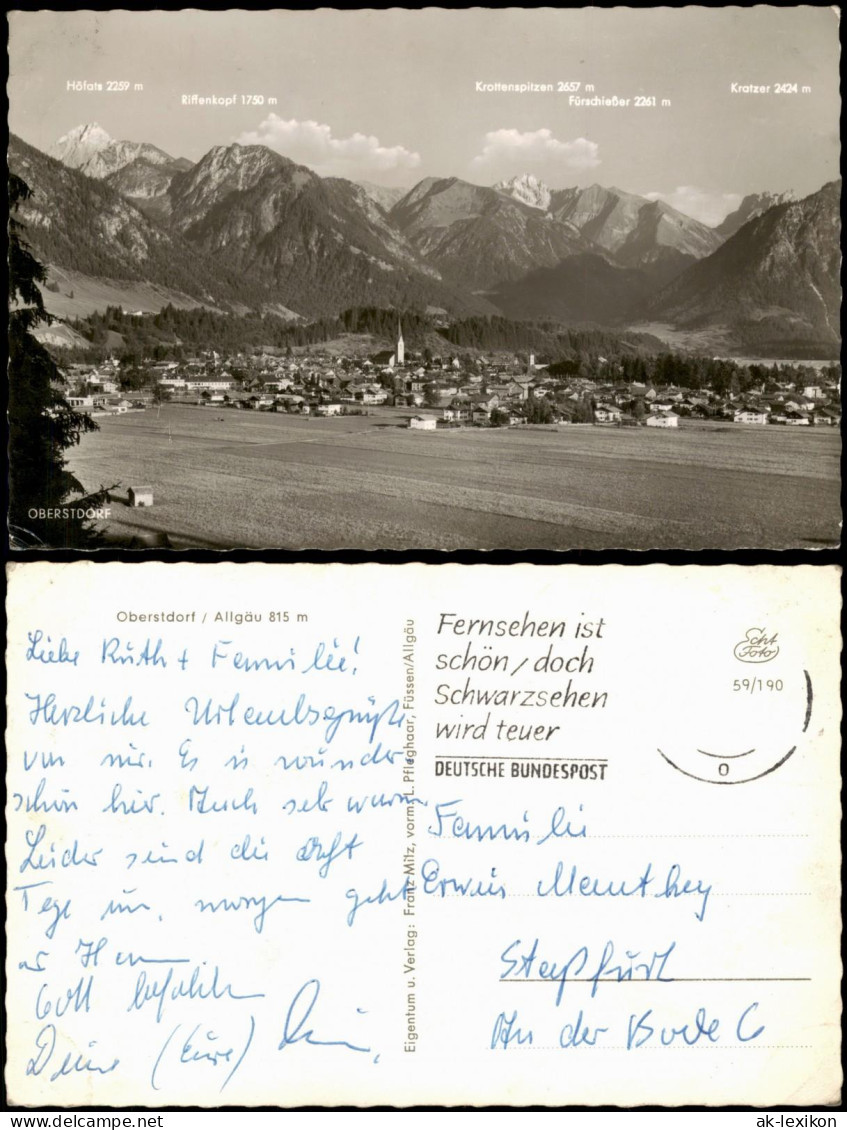 Höfats 2259 m
Riffenkopf 1750 m
Krottenspitzen 2657 m
Fürschießer 2261 m
Kratzer 2424 m
OBERSTDORF
Oberstdorf / Allgäu 815 m
Liebe Ruth + Familie!
Herzliche Urlaubsgrüße
von mir. Es is wunder-
schön hier. Auch sehr warm
Leider sind die acht
Tage um, morgen geht
es Heim
Gott befohlen
Deine (Eure)
Eigentum u. Verlag: Franz Milz, vorm. L. Pfleghaar, Füssen/Allgäu
Fernsehen ist
schön, doch
Schwarzsehen
wird teuer
DEUTSCHE BUNDESPOST
Echt
Foto
59/190
o
Familie
Erwin Manthey
Staßfurt
An der Bode 6
ak-lexikon.com